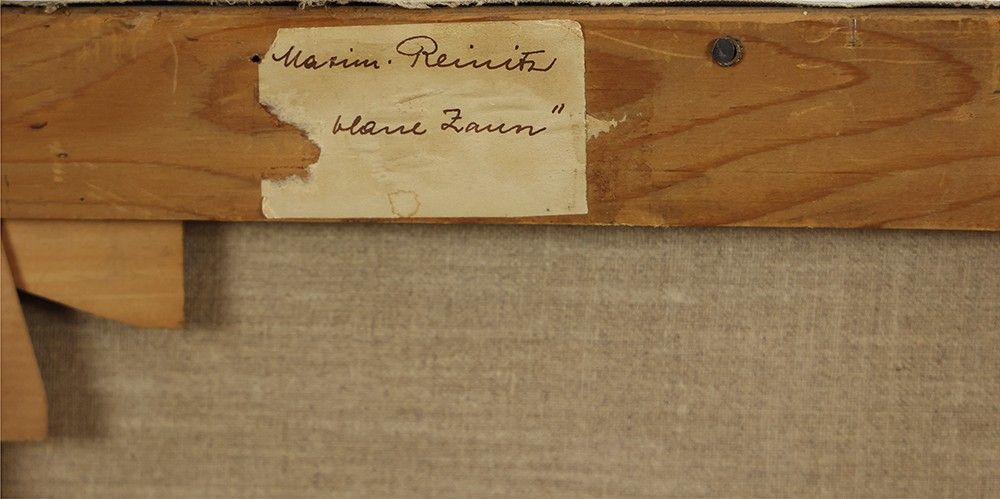 Maxim. Reinitz
blaue Zaun"